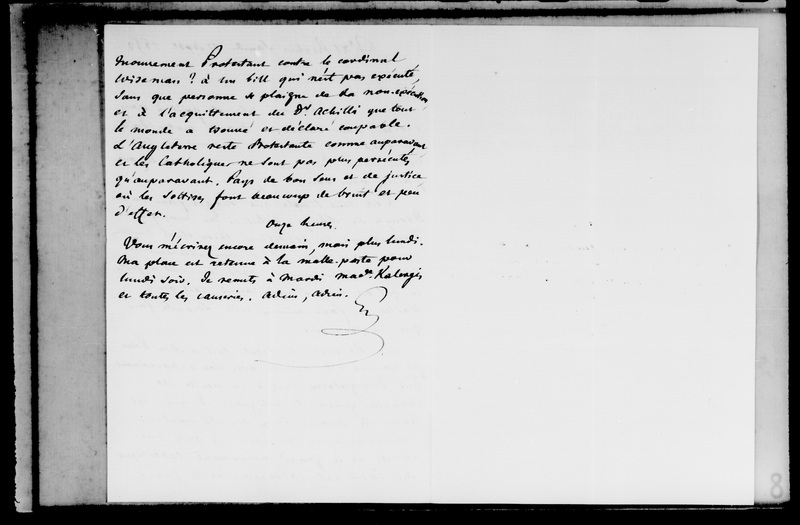 mouvement Protestant contre le cardinal
Wiseman ? à un bill qui n'est pas exécuté,
sans que personne se plaigne de la non-exécution
et à l'acquittement du Dr Achilli que tout
le monde a trouvé et déclaré coupable.
L'Angleterre reste Protestante comme auparavant
et les Catholiques ne sont pas plus persécutés
qu'auparavant. Pays de bon sens et de justice
où les sottises font beaucoup de bruit et peu
d'effet.
Onze heures.
Vous m'écrirez encore demain, mais plus lundi.
Ma place est retenue à la malle-poste pour
lundi soir. Je remets à Mardi made Kalergis
et toutes les causeries. Adieu, adieu.
8